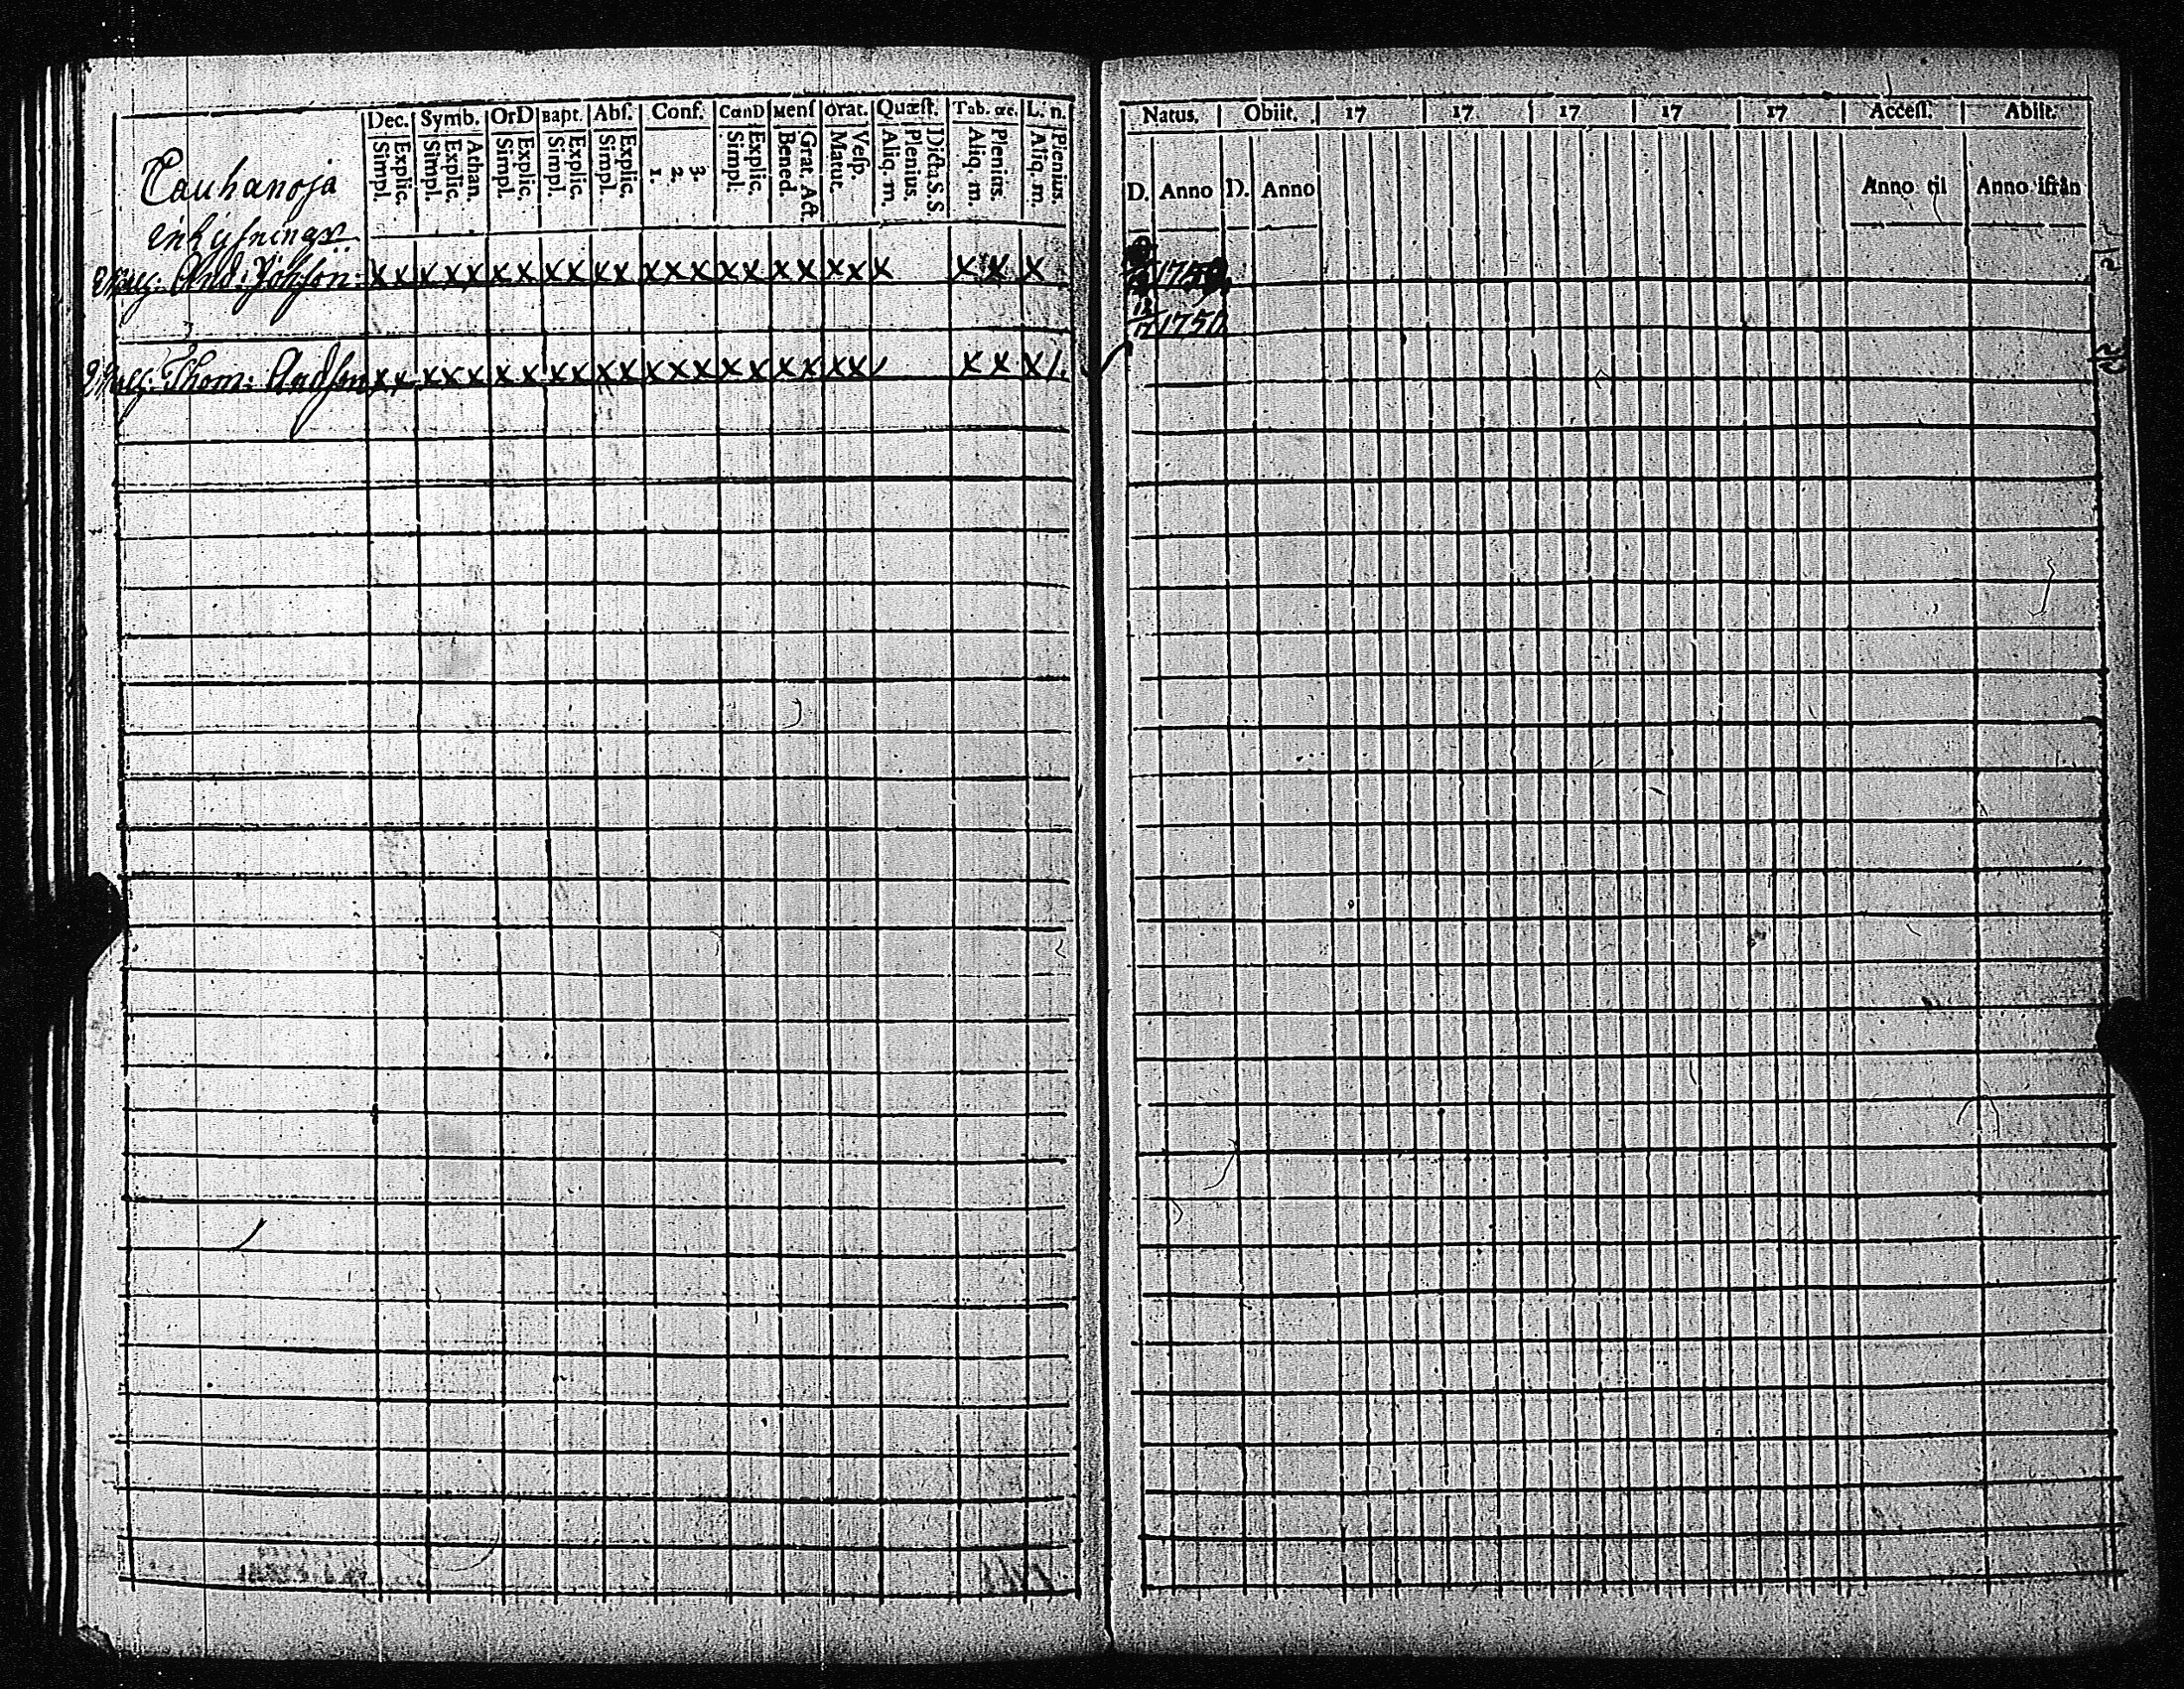 Dec. Symb. OrD Bapt. Abſ. Conf. CœnD Menſ Orat. Quæſt. Tab. œc. L. n.
Simpl. Explic. Simpl. Explic. Athan. Simpl. Explic. Simpl. Explic. Simpl. Explic. 1. 2. 3. Simpl. Explic. Bened. Grat. Act Matut. Veſp. Aliq. m. Plenius. Dicta S.S. Aliq. m. Plenius. Aliq. m. Plenius.
Cauhanoja
And: Johſon x x x x x x x x x x x x x x x x x x x x x x x x
Thom: Andſon x x x x x x x x x x x x x x x x x x x x x x x
Natus. Obiit. 17 17 17 17 17 Acceſſ. Abiit.
D. Anno D. Anno Anno til Anno ifrån
1750